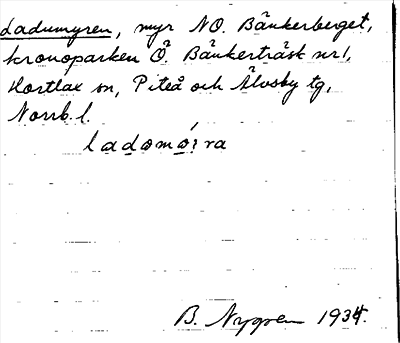 Ladumyren, myr NO. Bänkerberget,
kronoparken Ö. Bänkerträsk nr 1,
Hortlax sn, Piteå och Älvsby tg,
Norrb. l.
ladomo:ra
B. Nygren 1934.